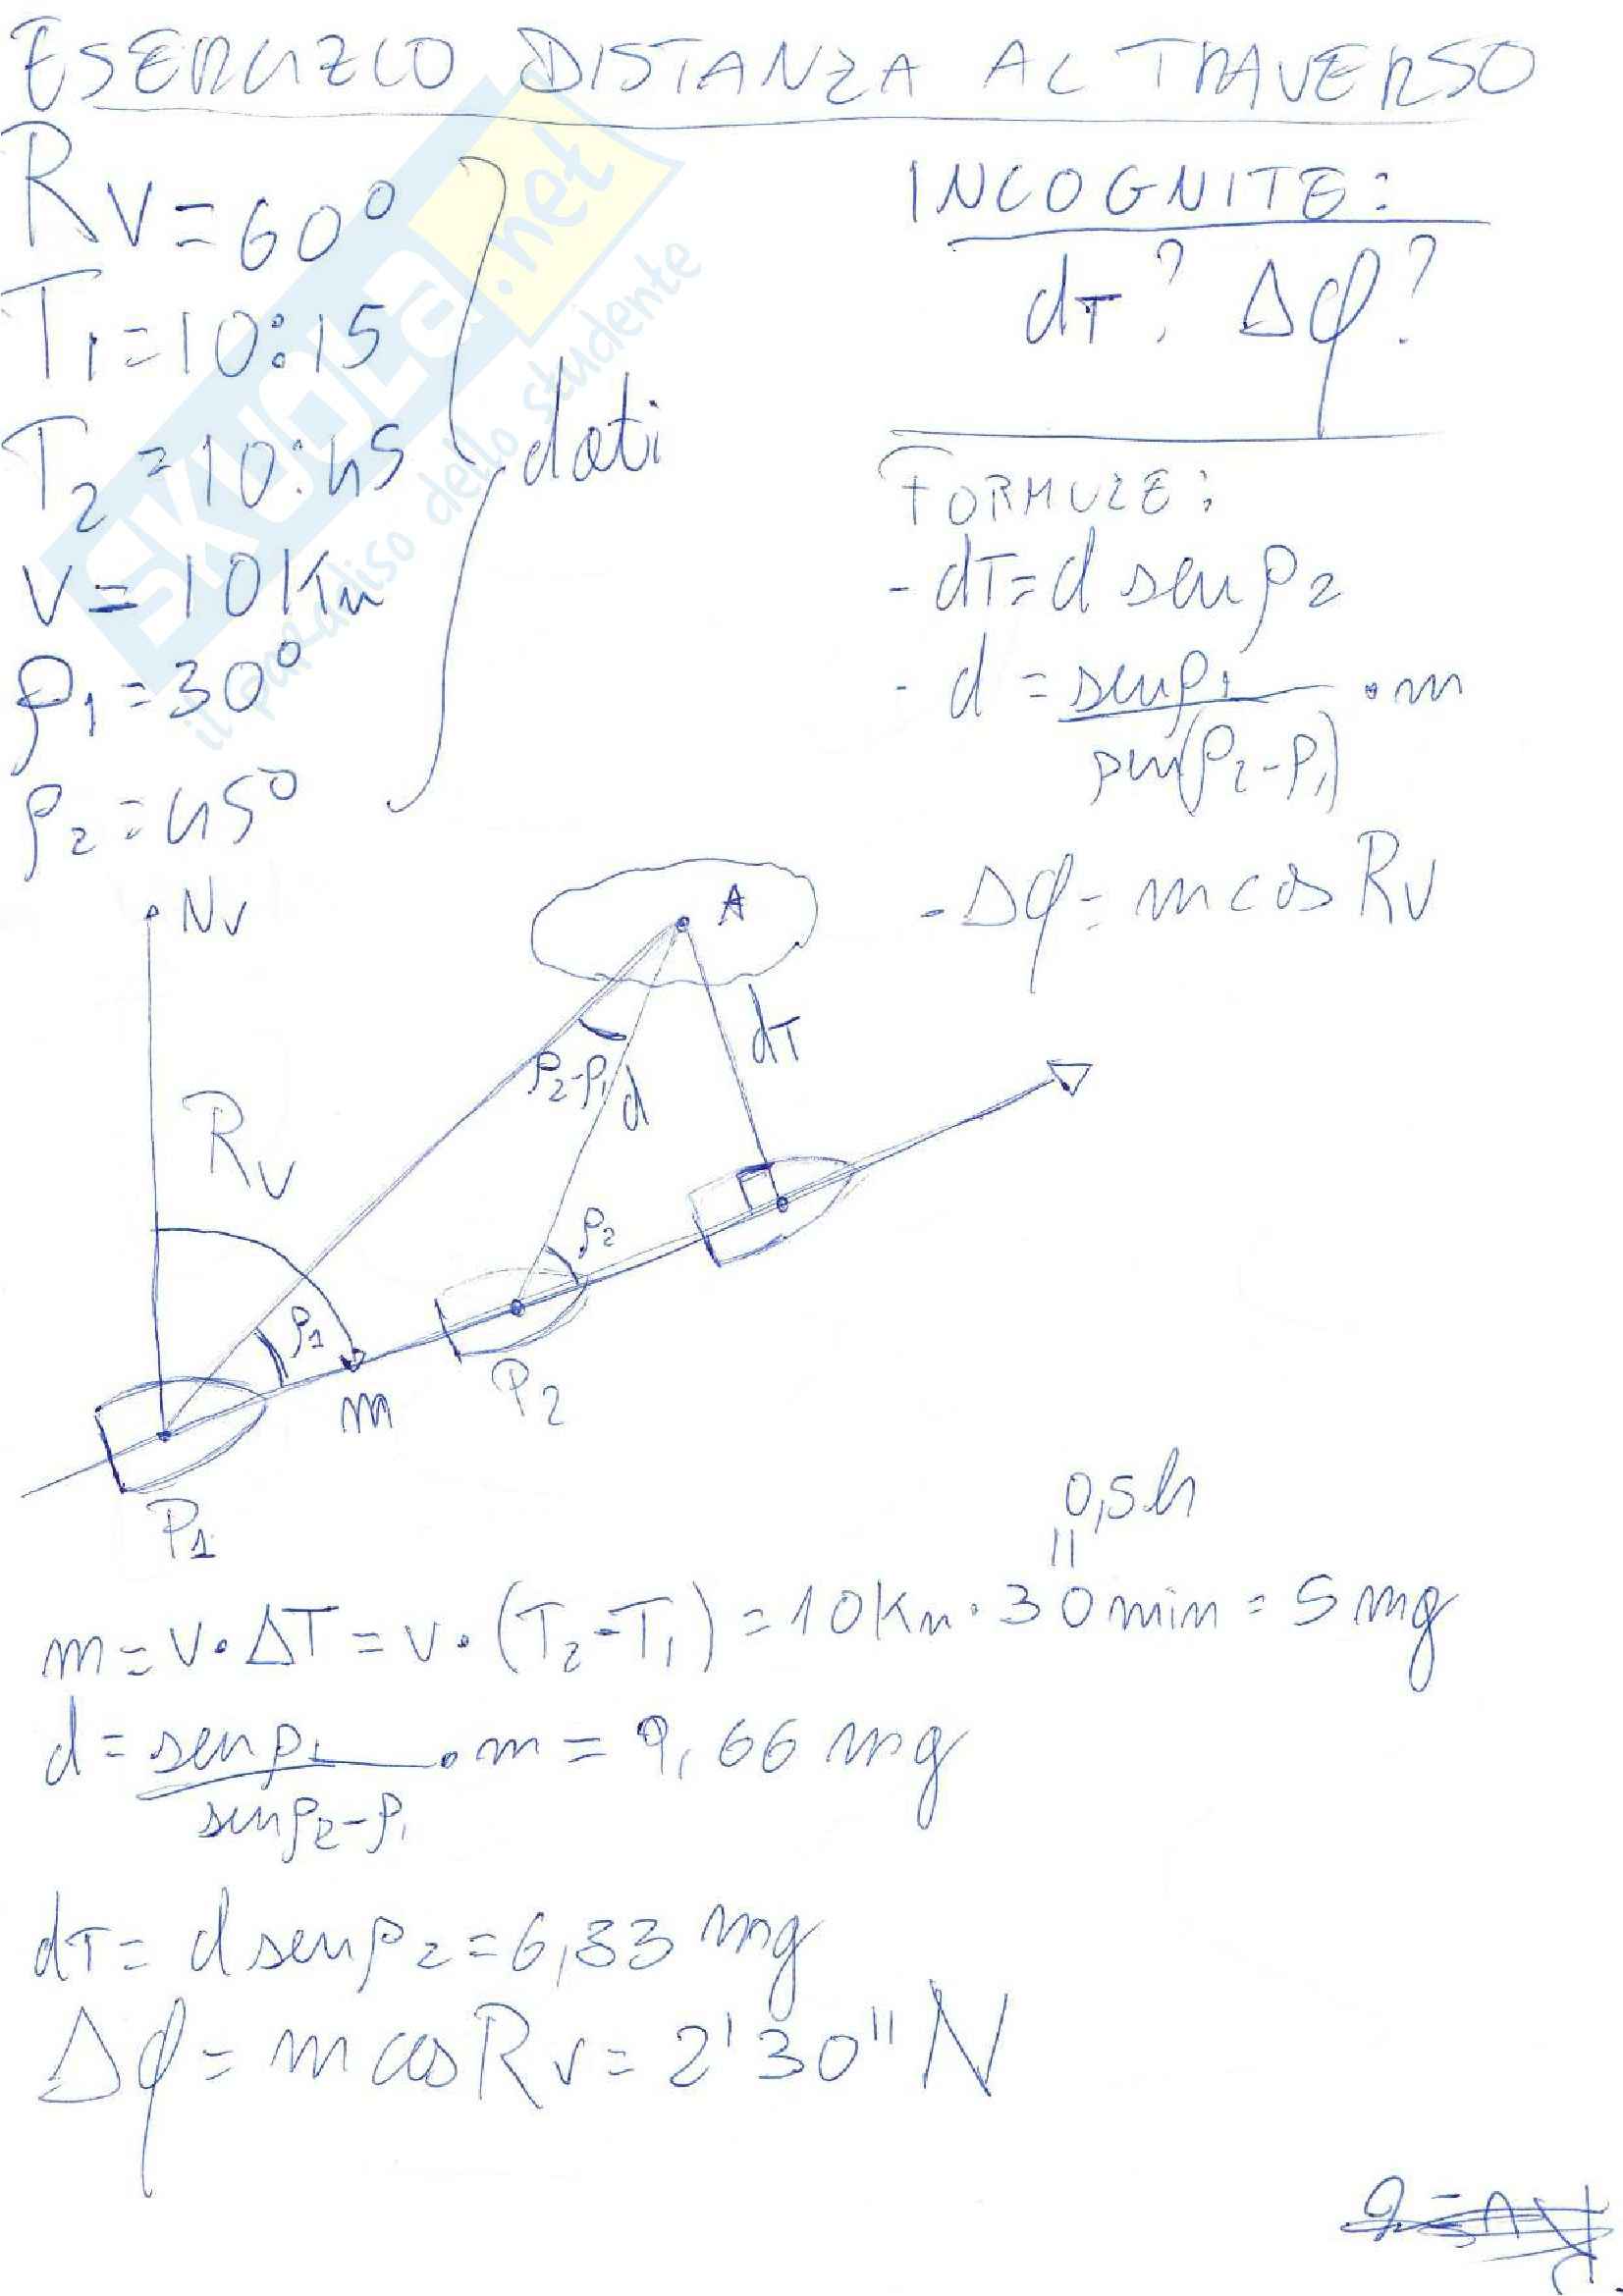 ESERCIZIO DISTANZA AL TRAVERSO
Rv = 60°
T1 = 10:15
T2 = 10:45
V = 10 Kn
ρ1 = 30°
ρ2 = 45°
dati
INCOGNITE:
dT? Δφ?
FORMULE:
- dT = d sen ρ2
- d = sen ρ1 / sen(ρ2-ρ1) · m
- Δφ = m cos Rv
SKUOLA.net
il paradiso dello studente
Nv
A
dT
ρ2-ρ1
d
Rv
ρ2
ρ1
m
P2
P1
0,5h
"
m = V · ΔT = V · (T2-T1) = 10 Kn · 30 min = 5 mg
d = sen ρ1 / sen ρ2-ρ1 · m = 9,66 mg
dT = d sen ρ2 = 6,83 mg
Δφ = m cos Rv = 2'30" N